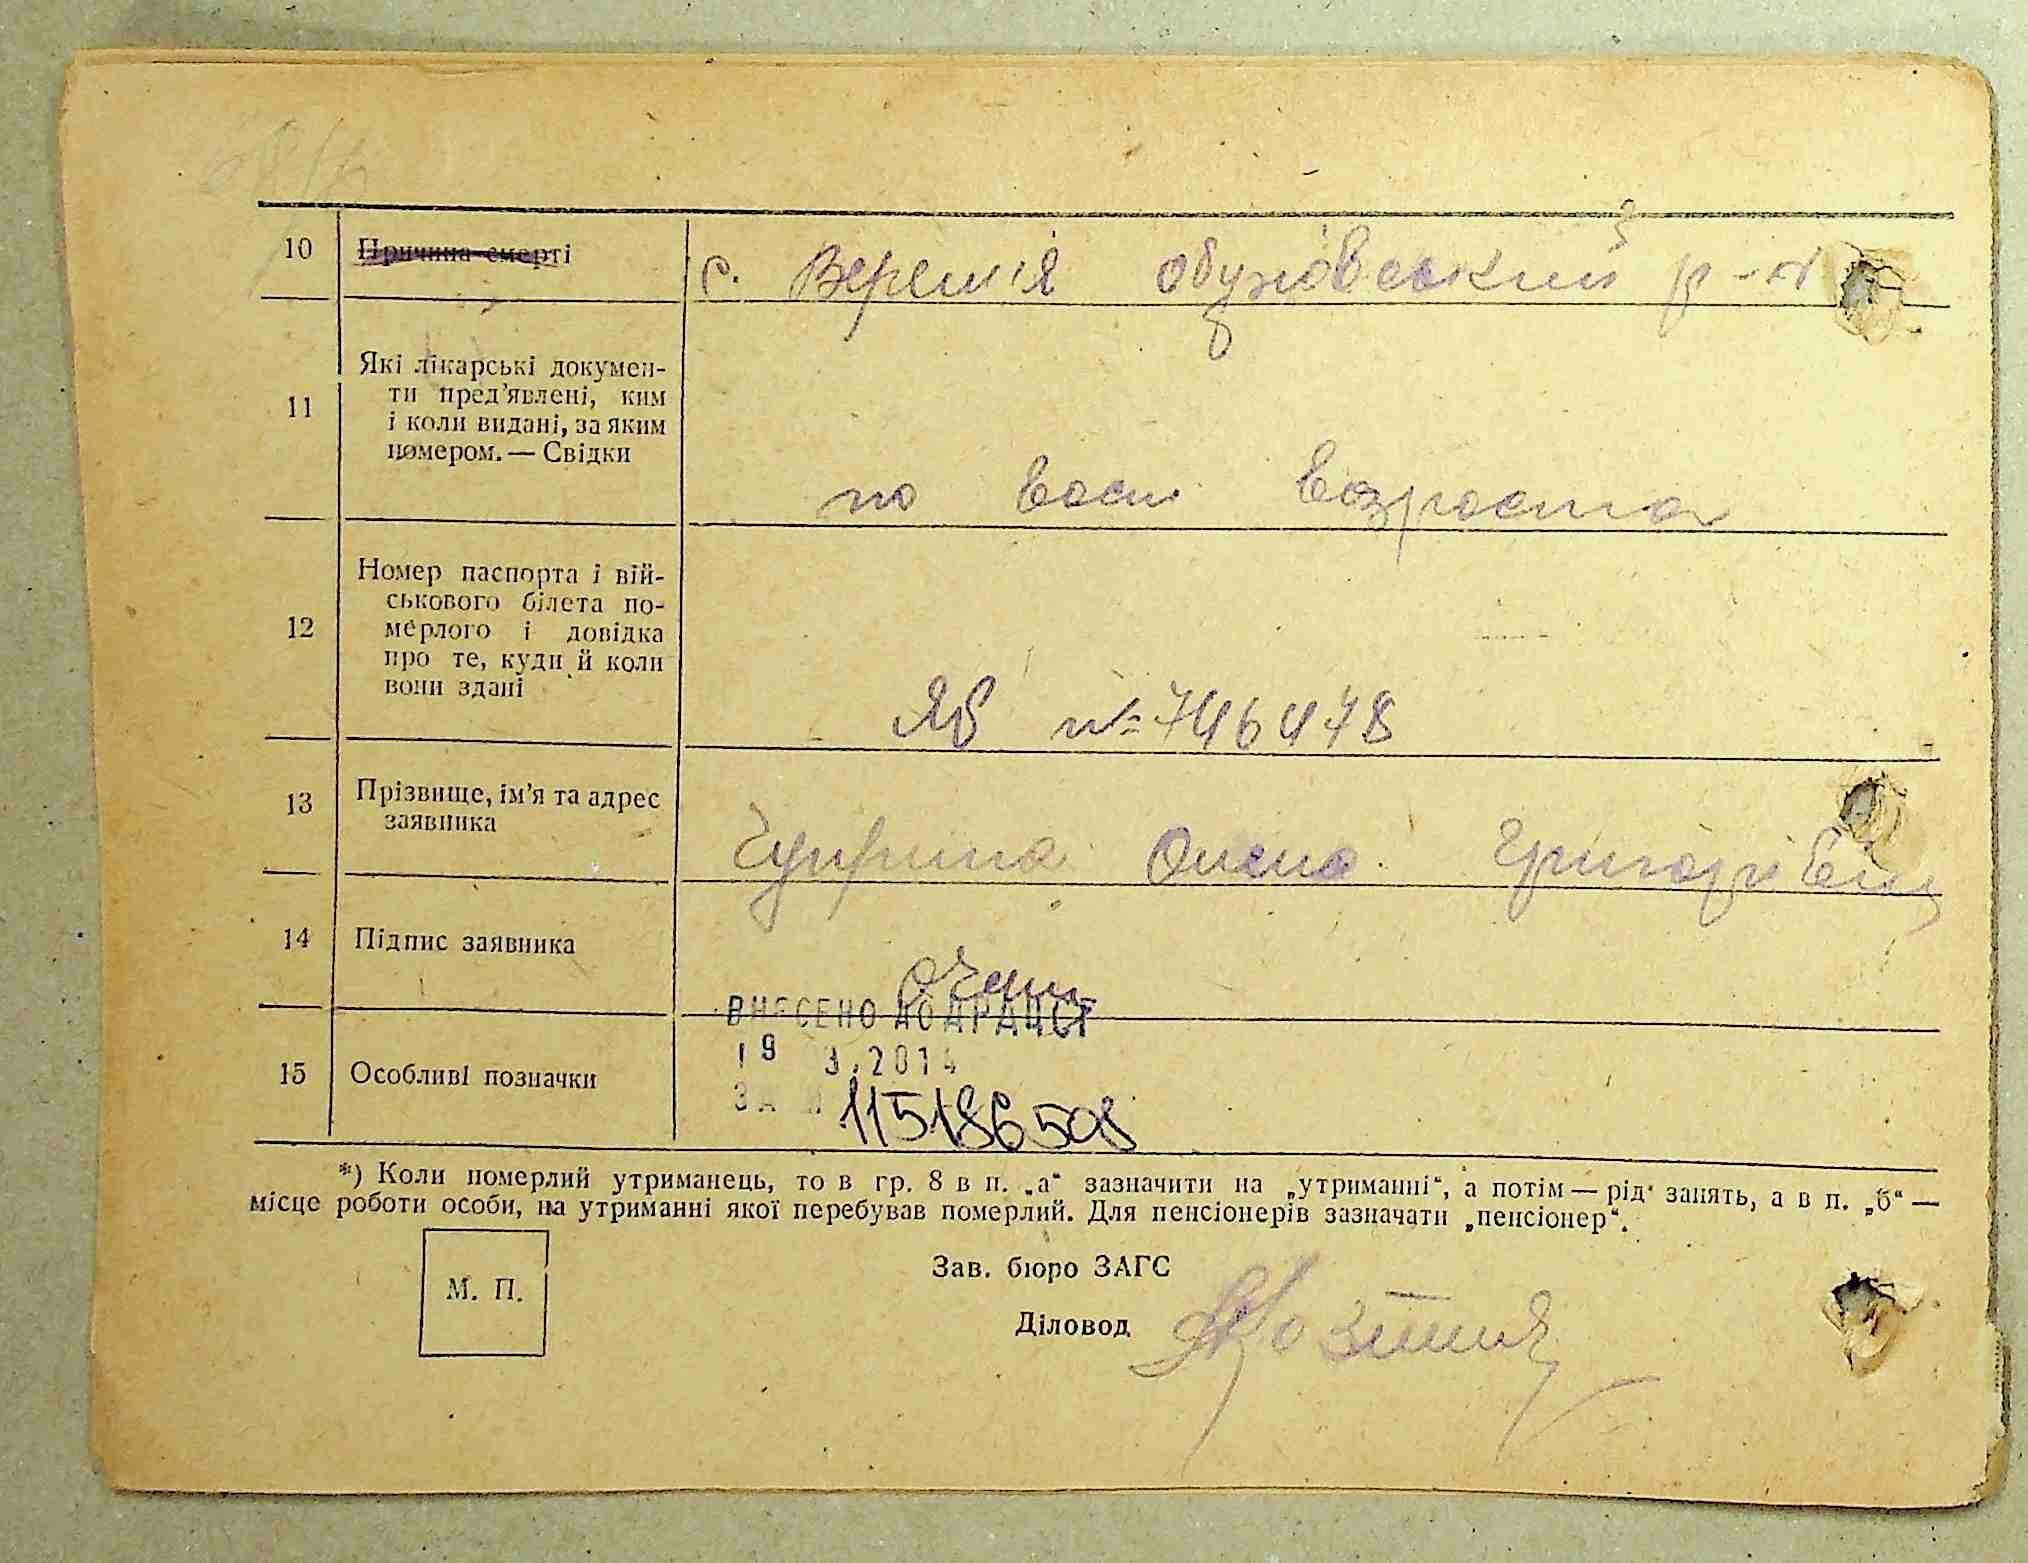 10 Причина смерті с. Верем'я Обухівський р-н
11 Які лікарські докумен-
ти пред'явлені, ким
і коли видані, за яким
номером. — Свідки
по возрасту
12 Номер паспорта і вій-
ськового білета по-
мерлого і довідка
про те, куди й коли
вони здані
ЯБ № 746478
13 Прізвище, ім'я та адрес
заявника
Чуприна Олена Григорівни
14 Підпис заявника
ВНЕСЕНО ДО ДРАЦСГ
19 3.2014
15 Особливі позначки
ЗА №
115186508
*) Коли померлий утриманець, то в гр. 8 в п. „а“ зазначити на „утриманні“, а потім — рід занять, а в п. „б“ —
місце роботи особи, на утриманні якої перебував померлий. Для пенсіонерів зазначати „пенсіонер“.
М. П.
Зав. бюро ЗАГС
Діловод